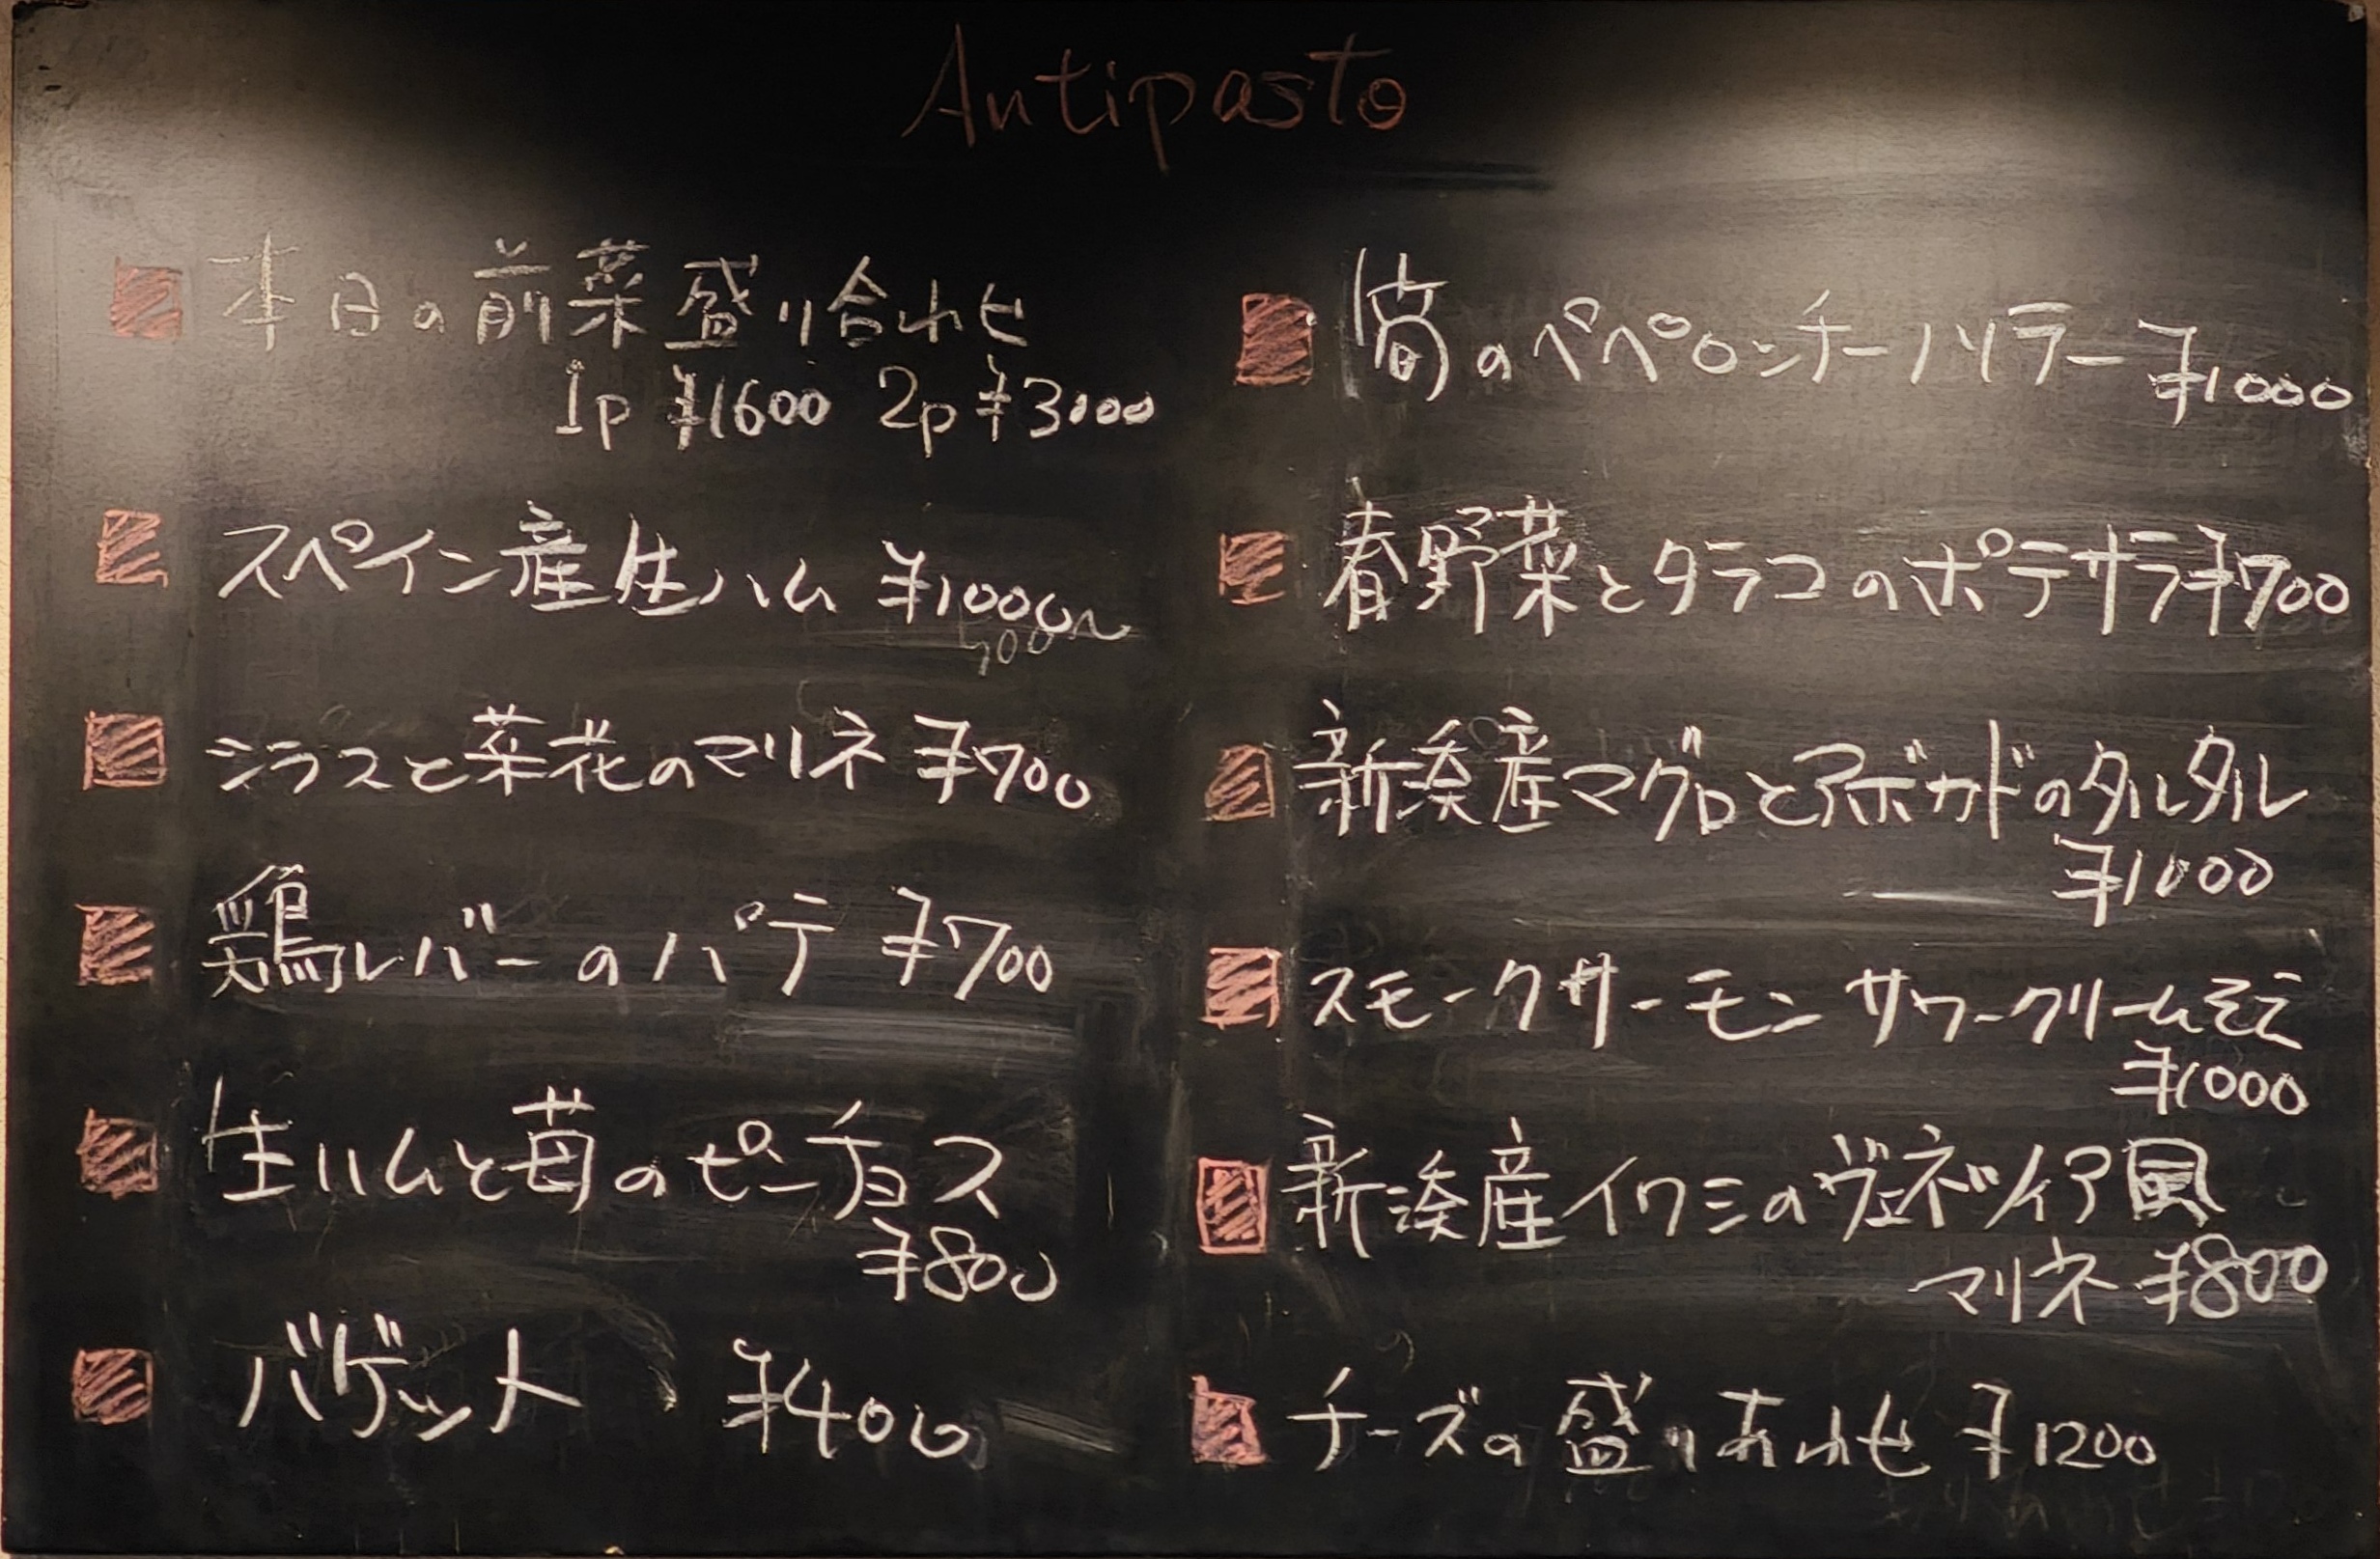 Antipasto
本日の前菜盛り合わせ
1p ¥1600 2p ¥3000
スペイン産生ハム ¥1000〜
シラスと菜花のマリネ ¥700
鶏レバーのパテ ¥700
生ハムと苺のピンチョス
¥800
バゲット ¥400
筍のペペロンチーノソテー ¥1000
春野菜とタラコのポテサラ ¥700
新湊産マグロとアボカドのタルタル
¥1000
スモークサーモン サワークリームそえ
¥1000
新湊産イワシのヴェネツィア風
マリネ ¥800
チーズの盛りあわせ ¥1200